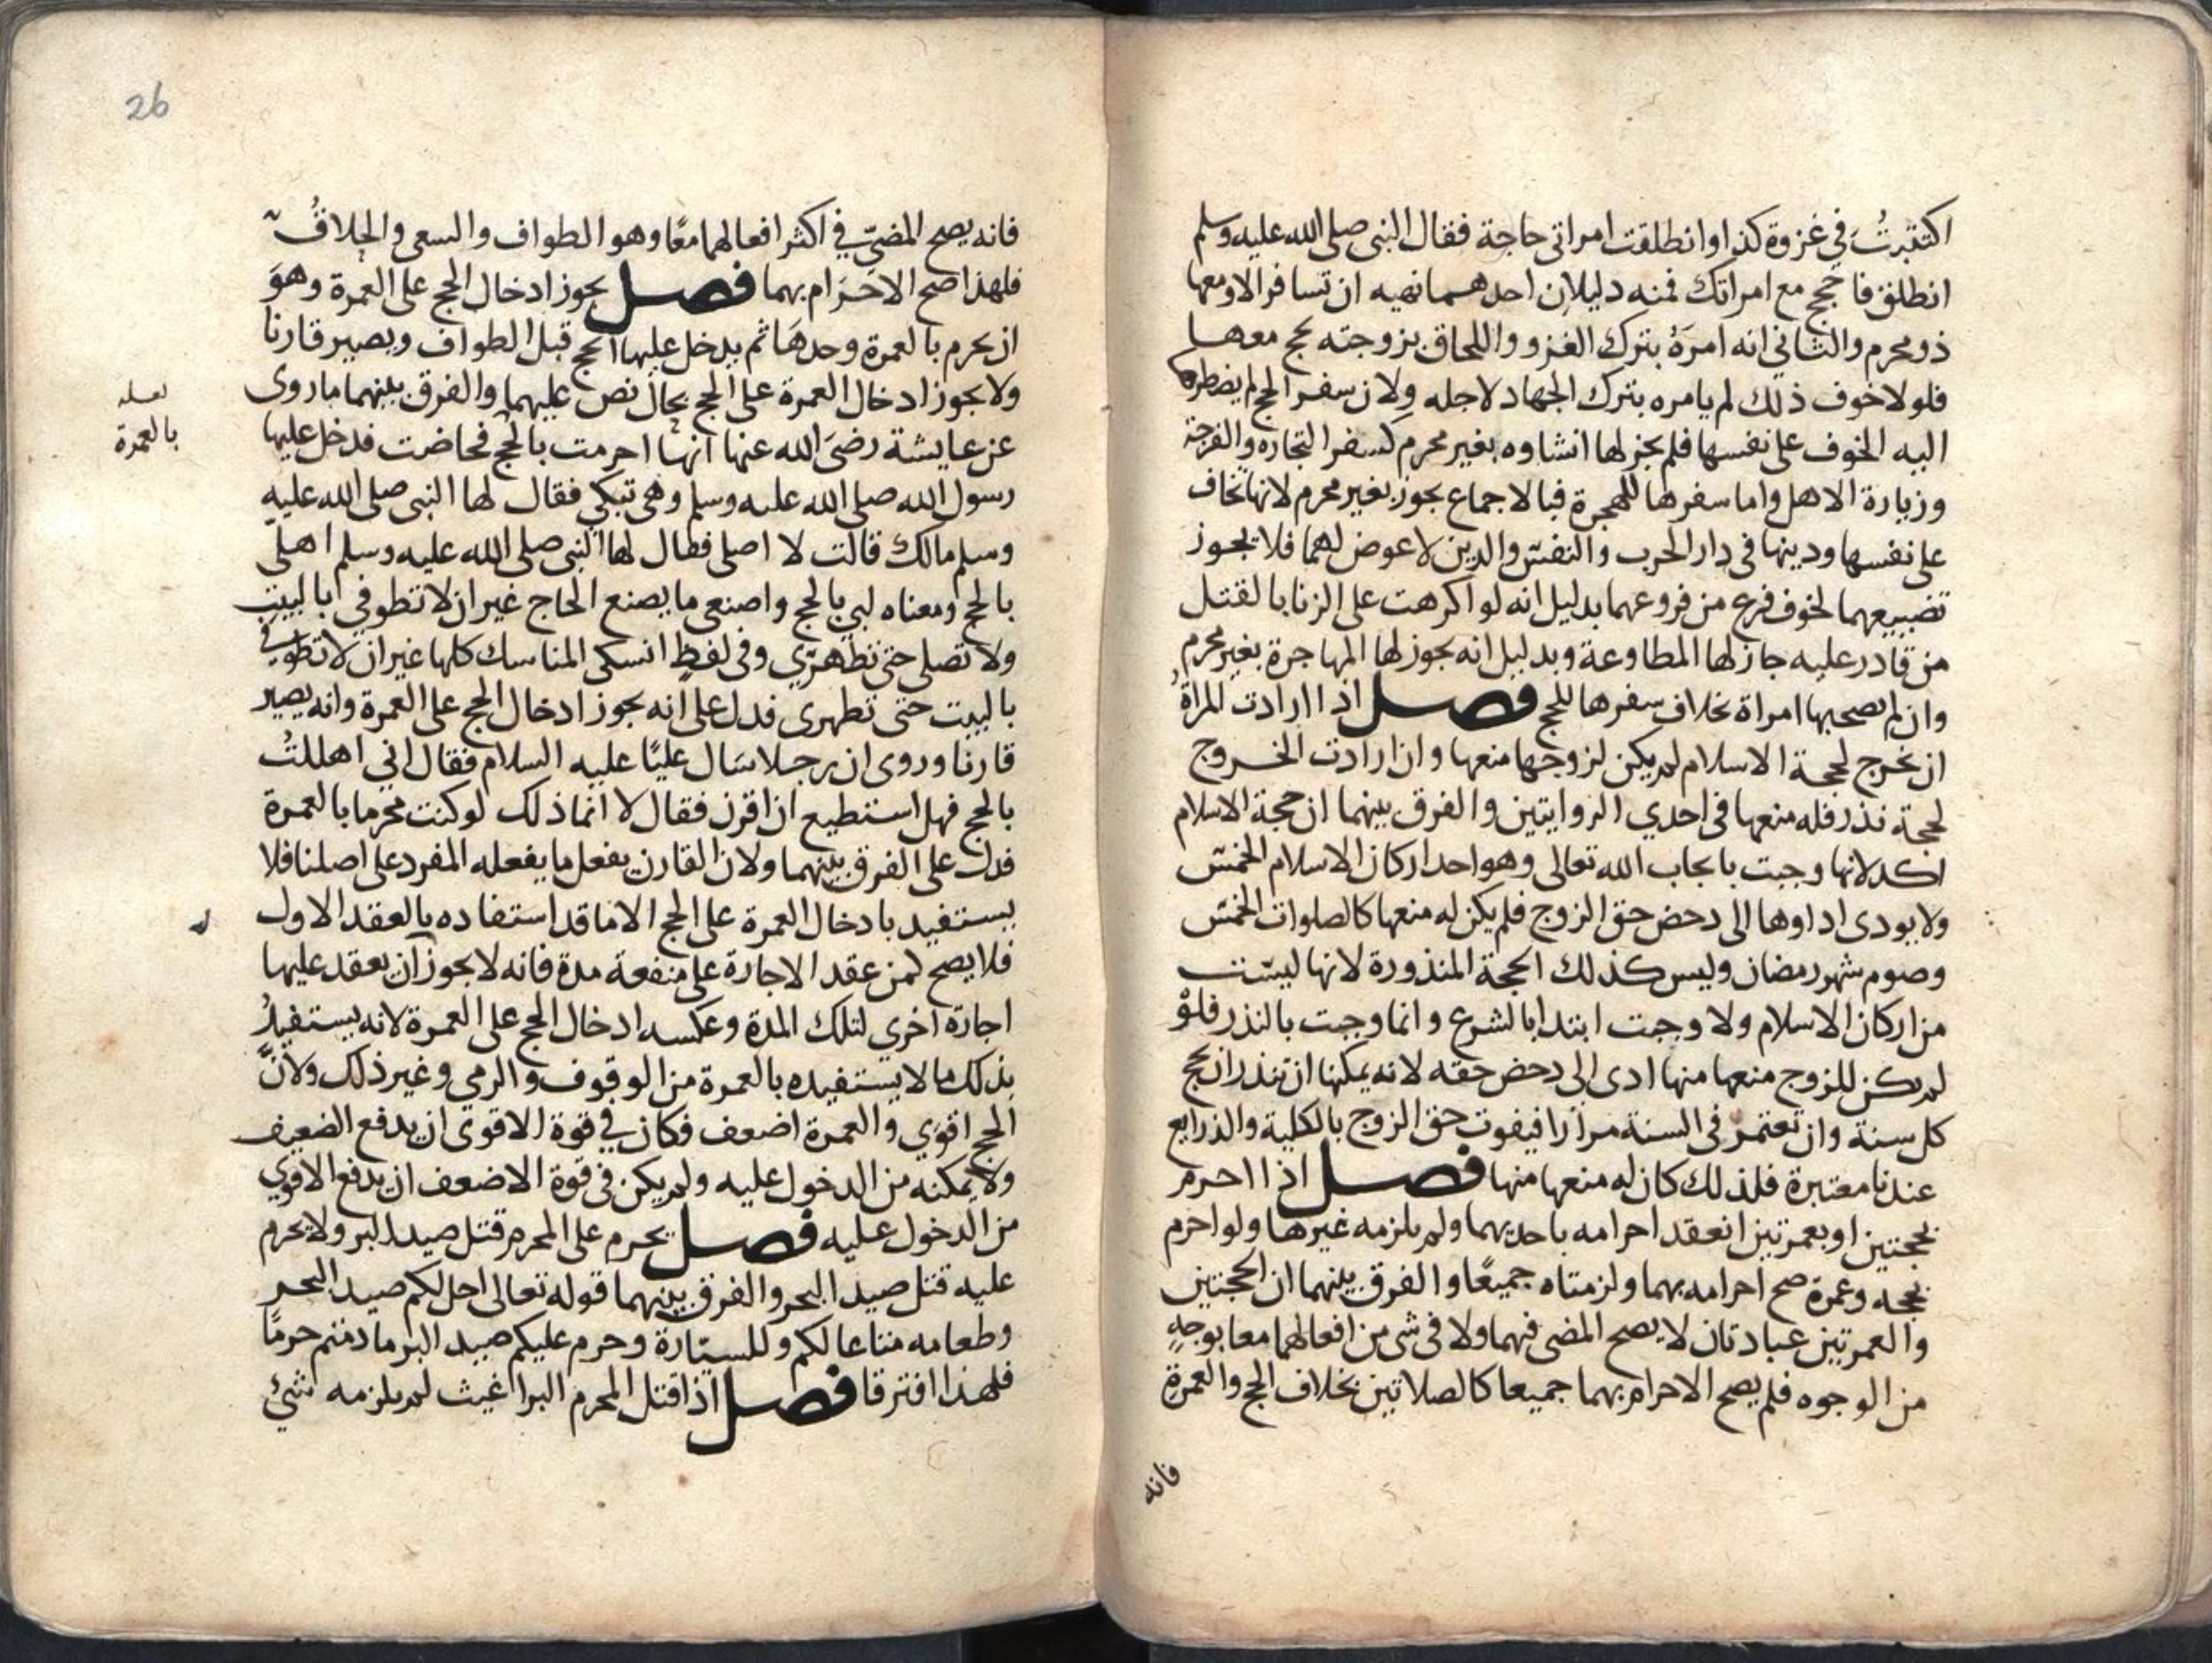 اكتتبتُ في غزوة كذا وانطلقت امراتي حاجة فقال النبي صلى الله عليه وسلم
انطلق فاحجج مع امراتك فمنه دليلان احدهما نهيه ان تسافر الا ومعها
ذو محرم والثاني انه امرَهُ بترك الغزو واللحاق بزوجته يحج معها
فلولا خوف ذلك لم يامره بترك الجهاد لاجله ولان سفر الحج لم يضطرها
اليه الخوف على نفسها فلم يجز لها انشاوه بغير محرم كسفر التجاره والفرجة
وزيارة الاهل واما سفرها للهجرة فبالاجماع يجوز بغير محرم لانها تخاف
على نفسها ودينها في دار الحرب والنفس والدين لا عوض لهما فلا يجوز
تضييعهما لخوف فرع من فروعهما بدليل انه لو اكرهت على الزنا بالقتل
من قادر عليه جاز لها المطاوعة وبدليل انه يجوز لها المهاجرة بغير محرم
وان لم يصحبها امراة بخلاف سفرها للحج فصل اذا ارادت المراةُ
ان تخرج لحجة الاسلام لم يكن لزوجها منعها وان ارادت الخروج
لحجة نذر فله منعها في احدي الروايتين والفرق بينهما ان حجة الاسلام
اكد لانها وجبت بايجاب الله تعالى وهو احد اركان الاسلام الخمس
ولا يودى اداوها الى دحض حق الزوج فلم يكن له منعها كالصلوات الخمس
وصوم شهر رمضان وليس كذلك الحجة المنذورة لانها ليست
من اركان الاسلام ولا وجبت ابتدا بالشرع وانما وجبت بالنذر فلو
لم يكن للزوج منعها منها ادى الى دحض حقه لانه يمكنها ان تنذر ان تحج
كل سنة وان تعتمر في السنة مرارا فيفوت حق الزوج بالكلية والذرايع
عندنا معتبرة فلذلك كان له منعها منها فصل اذا احرم
بحجتين او بعمرتين انعقد احرامه باحديهما ولم يلزمه غيرها ولو احرم
بحجه وعمرة صح احرامه بهما ولزمتاه جميعًا والفرق بينهما ان الحجتين
والعمرتين عبادتان لا يصح المضى فيهما ولا في شى من افعالهما معا بوجهٍ
من الوجوه فلم يصح الاحرام بهما جميعا كالصلاتين بخلاف الحج والعمرة
فانه
26
فانه يصح المضيّ في اكثر افعالهما معًا وهو الطواف والسعى والحلاقُ
فلهذا صح الاحرَام بهما فصل يجوز ادخال الحج على العمرة وهوَ
ان يحرم بالعمرة وحدهَا ثم يدخل عليها الحج قبل الطواف ويصير قارنا
ولا يجوز ادخال العمرة على الحج بحال نص عليهما والفرق بينهما ما روى
عن عايشة رضىَ الله عنها انها احرمت بالحج فحاضت فدخل عليها
لعله
بالعمرة
رسول الله صلى الله عليه وسلم وهى تبكي فقال لها النبى صلى الله عليه
وسلم مالك قالت لا اصلى فقال لها النبى صلى الله عليه وسلم اهلّى
بالحج ومعناه لبي بالحج واصنعى ما يصنع الحاج غير ان لا تطوفي بالبيت
ولا تصلى حتى تطهرّي وفي لفظٍ انسكى المناسك كلها غير ان لا تطوفي
بالبيت حتى تطهرى فدل على انه يجوز ادخال الحج على العمرة وانه يصير
قارنا وروى ان رجلا سَال عليًا عليه السلام فقال اني اهللتُ
بالحج فهل استطيع ان اقرن فقال لا انما ذلك لو كنت محرما بالعمرة
فدل على الفرق بينهما ولان القارن يفعل ما يفعله المفرد على اصلنا فلا
يستفيد بادخال العمرة على الحج الا ما قد استفاده بالعقد الاول
فلا يصح لمن عقد الاجارة على منفعة مدة فانه لا يجوز ان يعقد عليها
اجارة اخري لتلك المدة وعكسه ادخال الحج على العمرة لانه يستفيدُ
بذلك ما لا يستفيده بالعمرة من الوقوف والرمي وغير ذلك ولانَّ
الحج اقوى والعمرة اضعف فكان في قوة الاقوى ان يدفع الضعيف
ولا يمكنه من الدخول عليه ولم يكن في قوة الاضعف ان يدفع الاقوي
من الدخول عليه فصل يحرم على المحرم قتل صيد البر ولا يحرم
عليه قتل صيد البحر والفرق بينهما قوله تعالى احل لكم صيد البحر
وطعامه متاعا لكم وللسيّارة وحرم عليكم صيد البر ما دمتم حرمًا
فلهذا افترقا فصل اذا قتل المحرم البراغيث لم يلزمه شئ